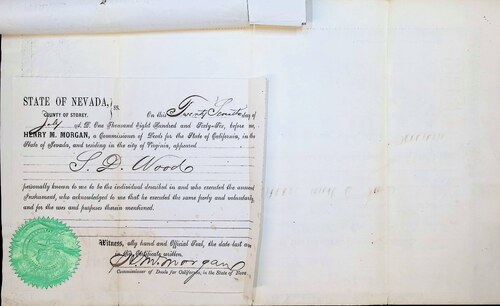 STATE OF NEVADA, } ss.
COUNTY OF STOREY. On this Twenty day of
July A. D. One Thousand Eight Hundred and Sixty-Six, before me,
HENRY M. MORGAN, a Commissioner of Deeds for the State of California, in the
State of Nevada, and residing in the city of Virginia, appeared
S. D. Wood
personally known to me to be the individual described in and who executed the annexed
Instrument, who acknowledged to me that he executed the same freely and voluntarily,
and for the uses and purposes therein mentioned.
Witness, My hand and Official Seal, the date last
in this Certificate written.
H. M. Morgan
Commissioner of Deeds for California, in the State of Neva